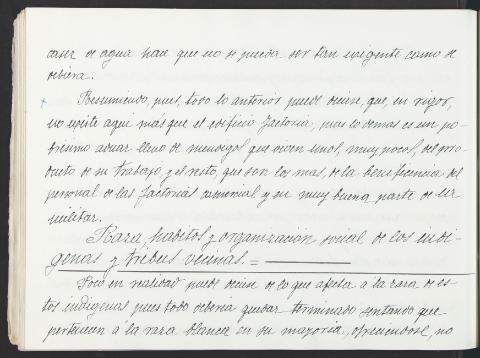 caser de agua hace que no se pueda ser tan exigente como se
debiera.
Resumiendo, pues, todo lo anterior puede decirse, que, en rigor,
no existe aqui más que el edificio factoria, pues lo demas es un po-
brisimo aduar lleno de mendigos que viven unos, muy pocos, del pro-
ducto de su trabajo, y el resto, que son los mas, de la beneficencia del
personal de las factorias comercial y en muy buena parte de la
militar.
Raza, habitos y organización social de los indi-
genas y tribus vecinas. =
Poco en realidad puede decirse de lo que afecta á la raza de es-
tos indigenas pues todo deberia quedar terminado sentando que
pertenecen á la raza blanca en su mayoria, ofreciendose, no